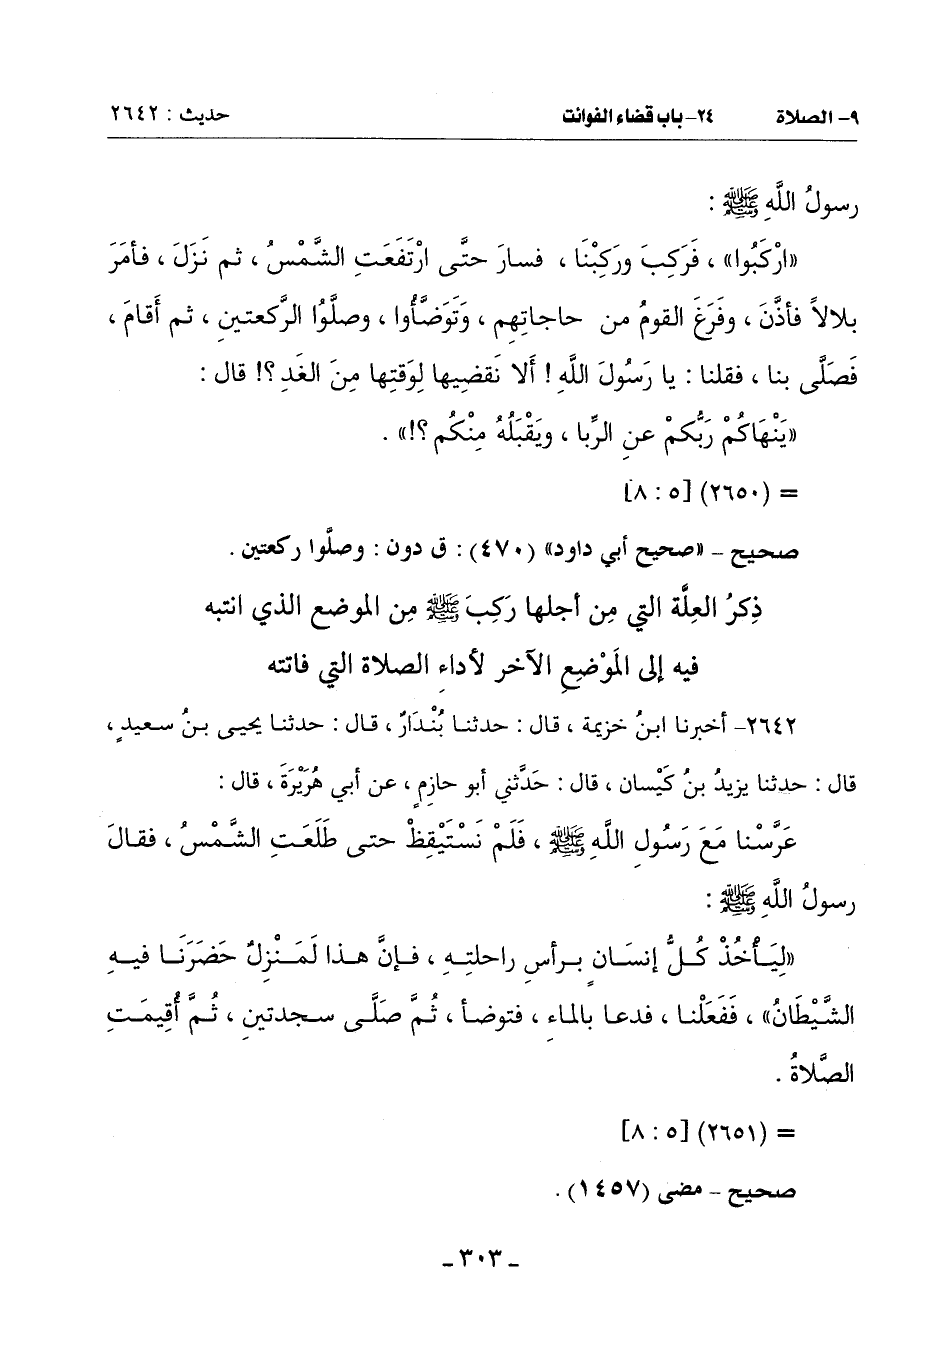 ٩- الصلاة ٢٤- باب قضاء الفوائت حديث : ٢٦٤٢
رسولُ اللَّهِ ﷺ :
«ارْكَبُوا» ، فَرَكِبَ ورَكِبْنَا ، فسارَ حتَّى ارْتَفَعَتِ الشَّمْسُ ، ثم نَزَلَ ، فأمَرَ
بلالاً فأذَّنَ ، وفَرَغَ القومُ من حاجاتِهم ، وَتَوَضَّأُوا ، وصلَّوُا الرَّكعتينِ ، ثم أَقامَ ،
فَصَلَّى بنا ، فقلنا : يا رَسُولَ اللَّهِ ! أَلا نَقضِيها لِوَقتِها مِنَ الغَدِ ؟! قال :
«يَنْهَاكُمْ رَبُّكمْ عنِ الرِّبا ، ويَقْبَلُهُ مِنْكُم ؟!» .
= (٢٦٥٠) [٥ : ٨]
صحيح - «صحيح أبي داود» (٤٧٠) : ق دون : وصلَّوا ركعتين .
ذِكرُ العِلَّة التي مِن أجلها رَكِبَ ﷺ مِن الموضع الذي انتبه
فيه إلى المَوْضِعِ الآخر لأداءِ الصلاة التي فاتته
٢٦٤٢- أخبرنا ابنُ خزيمة ، قال : حدثنا بُنْدَارٌ ، قال : حدثنا يحيى بنُ سعيدٍ ،
قال : حدثنا يزيدُ بنُ كَيْسان ، قال : حَدَّثني أبو حازِمٍ ، عن أبي هُرَيْرَةَ ، قال :
عَرَّسْنا مَعَ رَسُولِ اللَّهِ ﷺ ، فَلَمْ نَسْتَيْقِظْ حتى طَلَعَتِ الشَّمْسُ ، فقالَ
رسولُ اللَّهِ ﷺ :
«لِيَأْخُذْ كُلُّ إنسَانٍ برأسِ راحلتِهِ ، فإنَّ هذا لَمَنْزِلٌ حَضَرَنَا فيهِ
الشَّيْطَانُ» ، فَفَعَلْنا ، فدعا بالماءِ ، فتوضأ ، ثُمَّ صَلَّى سجدتينِ ، ثُمَّ أُقِيمَتِ
الصَّلاةُ .
= (٢٦٥١) [٥ : ٨]
صحيح - مضى (١٤٥٧) .
- ٣٠٣ -